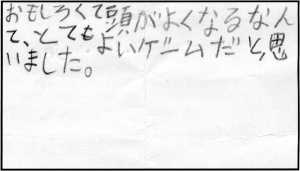 おもしろくて頭がよくなるなん
て、とてもよいゲームだと思
いました。